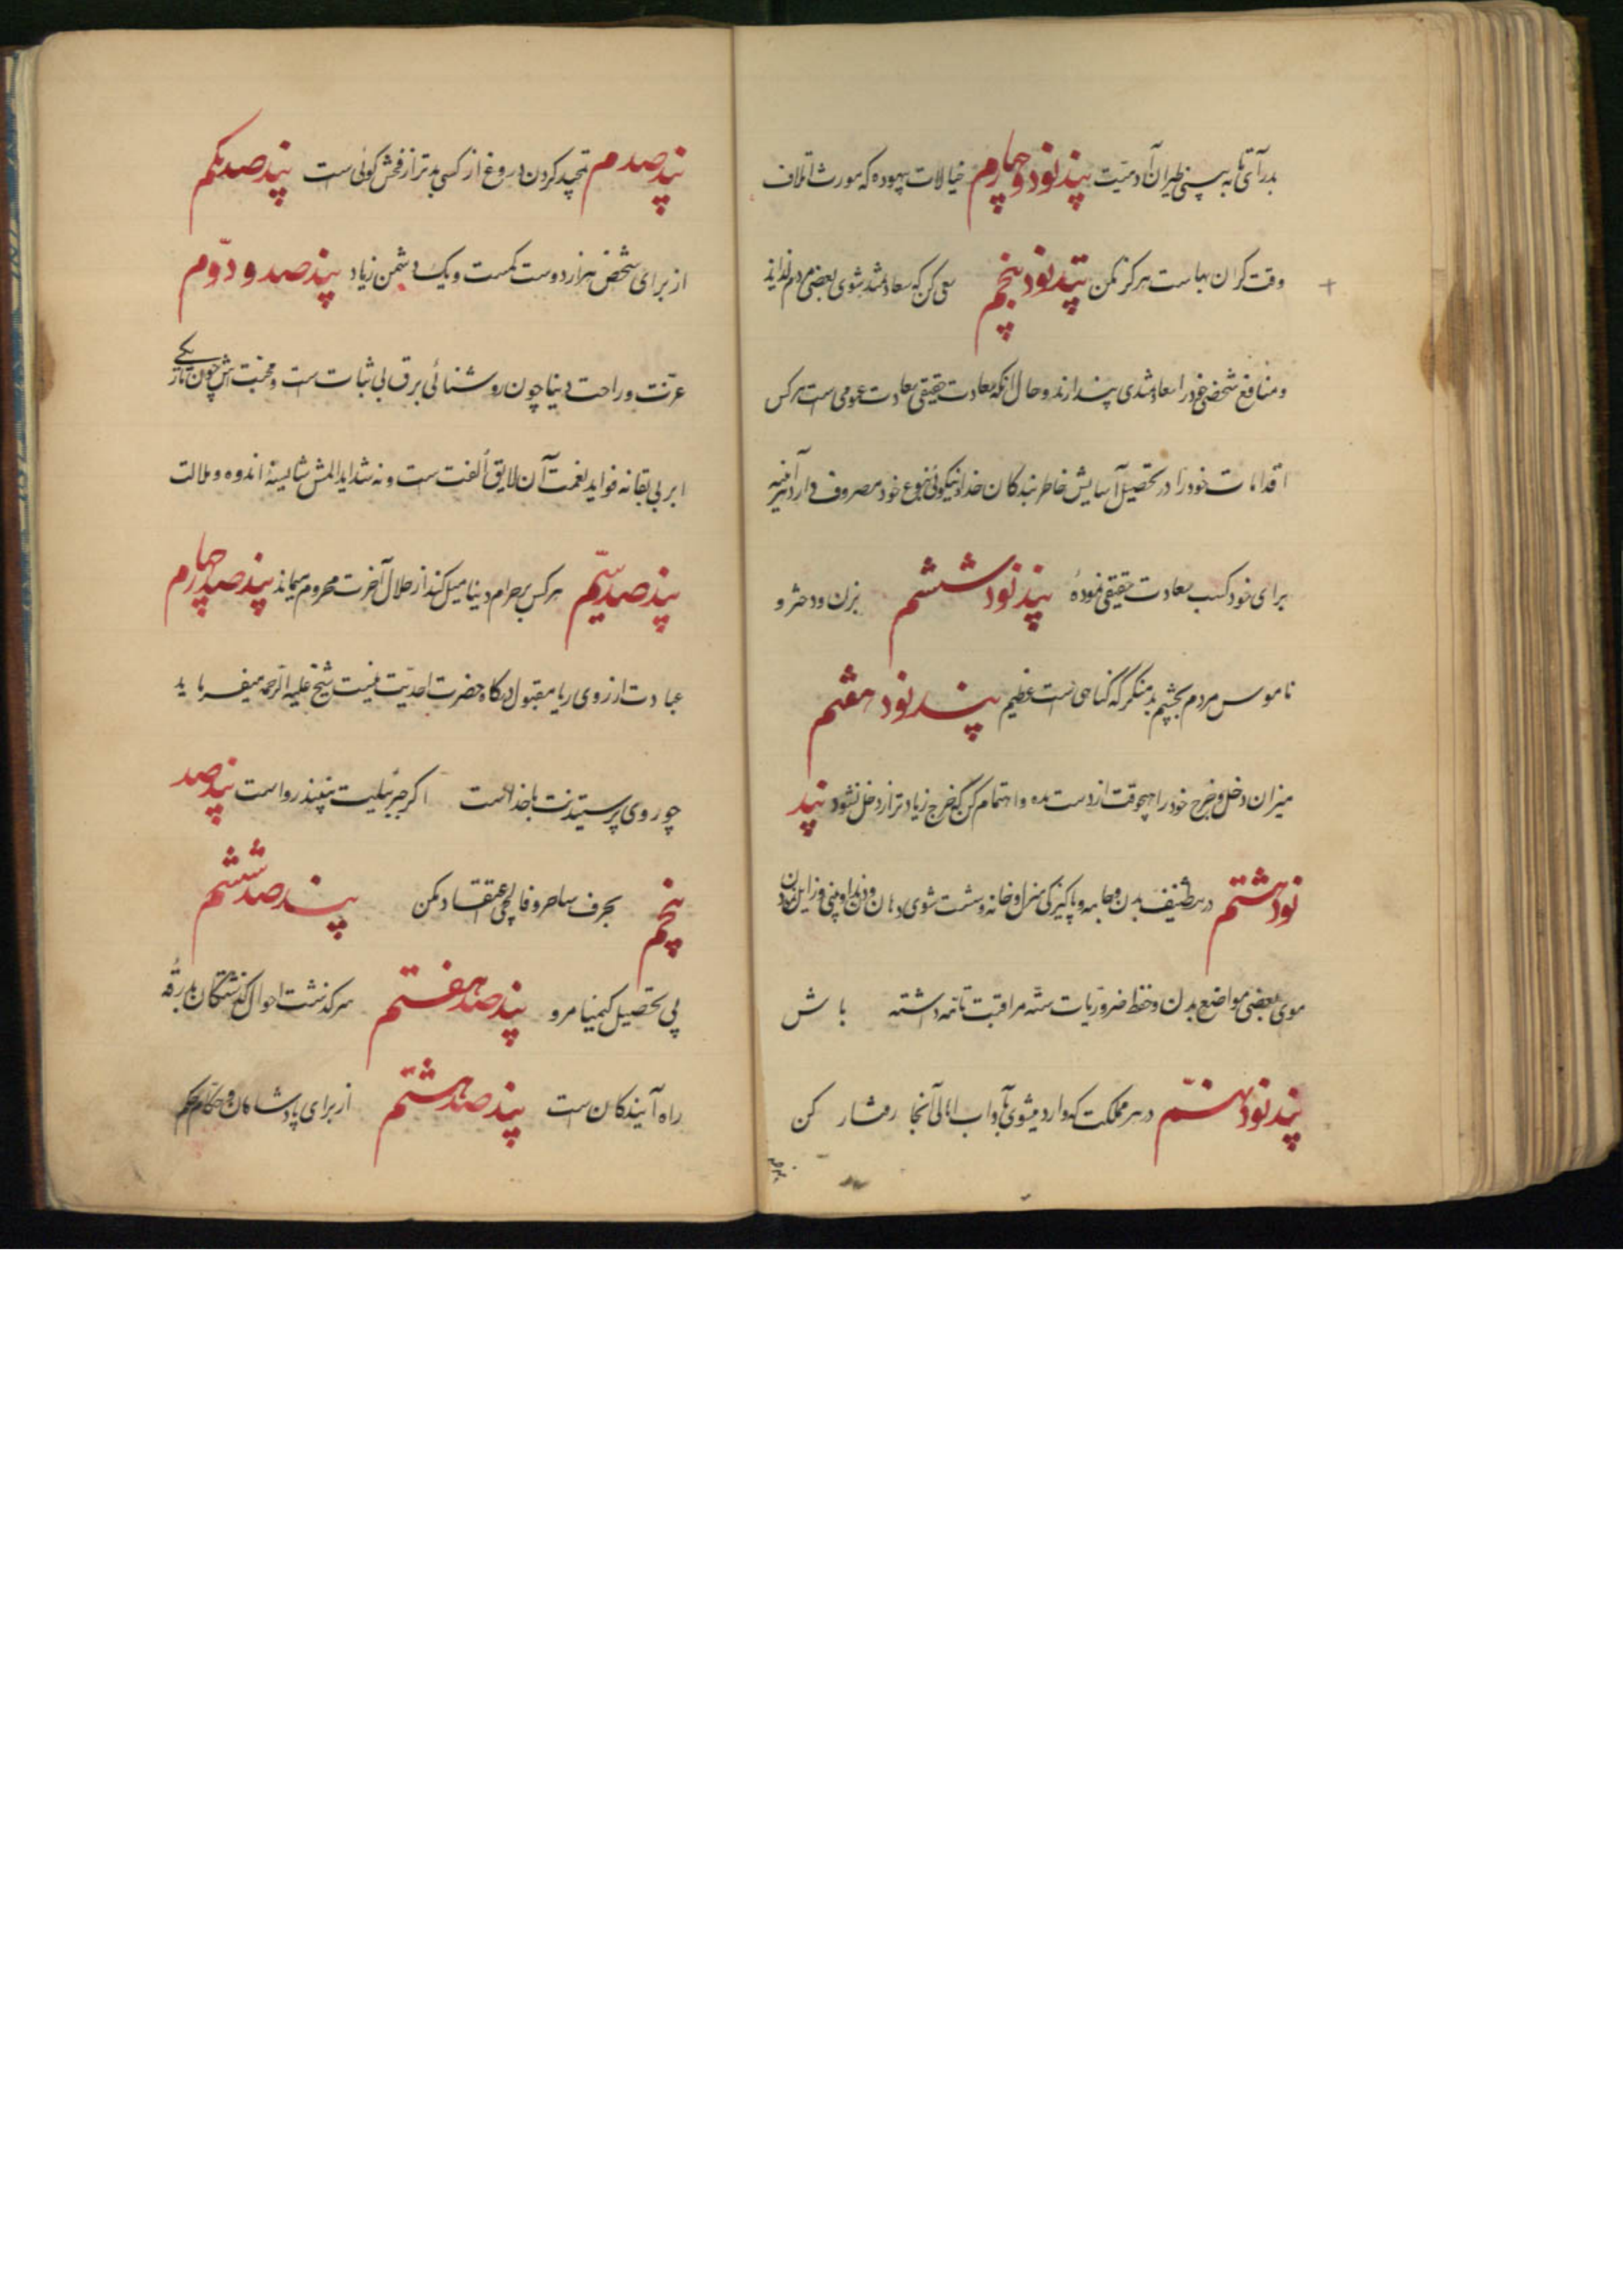 بدر آی تا به بینی طیران آدمیت پند نود و چهارم خیالات بیهوده که مورث اتلاف
وقت گران بهاست هرگز مکن پند نود پنجم سعی کن که سعادتمند بشوی بعضی مردم لذاید
و منافع شخصی خود را سعادتمندی پندارند و حال آنکه سعادت حقیقی سعادت عمومی است هرکس
اقدامات خود را در تحصیل آسایش خاطر بندکان خدا و نیکوئی بنوع خود مصروف دارد هرآینه
برای خود کسب سعادت حقیقی نموده پند نود ششم بزن و دختر و
ناموس مردم بچشم بد منگر که گناهی است عظیم پند نود هفتم
میزان دخل و خرج خود را هیچوقت از دست مده و اهتمام کن که خرج زیادتر از دخل نشود پند
نود هشتم در تنظیف بدن و جامه و پاکیزگی منزل و خانه و شست شوی دهان و دندان و بینی و زایل نمودن
موی بعضی مواضع بدن و حفظ ضروریات سته مراقبت تامه داشته باش
پند نود نهم در هر مملکت که وارد میشوی بآداب اهالی آنجا رفتار کن
پند صدم
پند صدم تمجید کردن دروغ از کسی بدتر از فحش گوئی است پند صد یکم
از برای شخص هزار دوست کمست و یک دشمن زیاد پند صد و دوّم
عزّت و راحت دنیا چون روشنائی برق بی ثبات است و محنت اش چون تاریکی
ابر بی بقا نه فواید نعمت آن لایق اُلفت است و نه شداید المش شایستهٔ اندوه و ملالت
پند صد سیّم هر کس بر حرام دنیا میل کند از حلال آخرت محروم میماند پند صد چهارم
عبادت از روی ریا مقبول درگاه حضرت احدیّت نیست شیخ علیه الرّحمه میفرماید
چو روی پرستیدنت با خداست اگر جبرئیلت نبیند رواست پند صد
پنجم بحرف ساحر و فالچی اعتقاد مکن پند صد ششم
پی تحصیل کیمیا مرو پند صد هفتم سرگذشت احوال گذشتگان بدرقهٔ
راه آیندگان است پند صد هشتم از برای پادشاهان و حکام